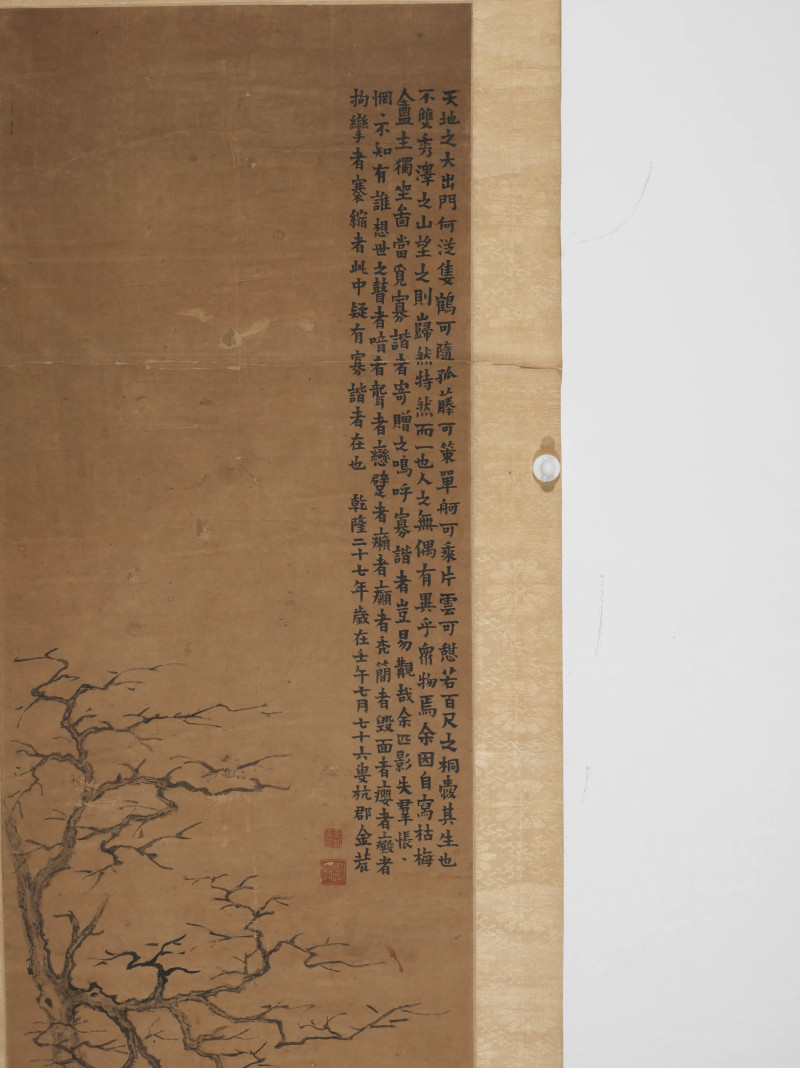 天地之大出門何從隻鶴可隨孤藤可策單舸可乘片雲可憩若百尺之桐檅其生也
不雙秀澤之山望之則巋然特然而一也人之無偶有異乎眾物焉余因自寫枯梅
盦主獨坐啚當覓寡諧者寄贈之鳴呼寡諧者豈易覯哉余匹影失羣悵、
惘、不知有誰想世之瞽者喑者聾者戀躄者癩者癲者禿簡者毀面者癭者癡者
拘攣者褰縮者此中疑有寡諧者在也 乾隆二十七年歲在壬午七月七十六叟杭郡金農